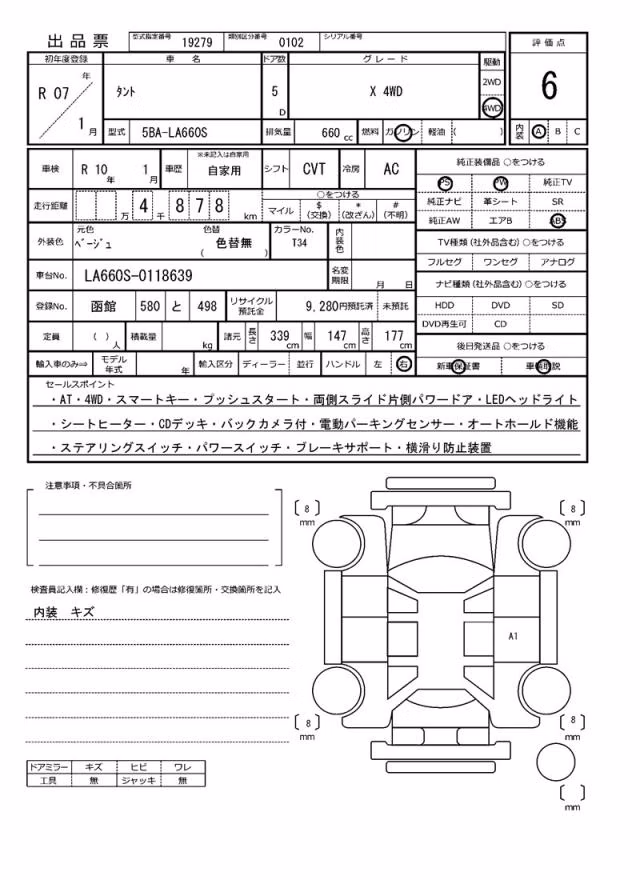 出品票 型式指定番号 19279 類別区分番号 0102 シリアル番号
評価点
6
内装 A B C
初年度登録 車名 ドア数 グレード 駆動
R 07 年 1 月 タント 5 D X 4WD 2WD 4WD
型式 5BA-LA660S 排気量 660 cc 燃料 ガソリン 軽油 ( )
車検 R 10 年 1 月 車歴 ※未記入は自家用 自家用 シフト CVT 冷房 AC
走行距離 万 4 千 8 7 8 km ○をつける
マイル $ (交換) * (改ざん) # (不明)
外装色 元色 ベージュ 色替 色替無 ( ) カラーNo. T34 内装色
車台No. LA660S-0118639 名変期限 月 日
登録No. 函館 580 と 498 リサイクル預託金 9,280円預託済 未預託
定員 ( ) 人 積載量 kg 諸元 長さ 339 cm 幅 147 cm 高さ 177 cm
輸入車のみ⇒ モデル年式 年 輸入区分 ディーラー・並行 ハンドル 左・右
純正装備品 ○をつける
PS PW 純正TV
純正ナビ 革シート SR
純正AW エアB ABS
TV種類 (社外品含む) ○をつける
フルセグ ワンセグ アナログ
ナビ種類 (社外品含む) ○をつける
HDD DVD SD
DVD再生可 CD
後日発送品 ○をつける
新車保証書 車輌取説
セールスポイント
・AT・4WD・スマートキー・プッシュスタート・両側スライド片側パワードア・LEDヘッドライト
・シートヒーター・CDデッキ・バックカメラ付・電動パーキングセンサー・オートホールド機能
・ステアリングスイッチ・パワースイッチ・ブレーキサポート・横滑り防止装置
注意事項・不具合箇所
検査員記入欄：修復歴「有」の場合は修復箇所・交換箇所を記入
内装 キズ
ドアミラー キズ ヒビ ワレ
工具 無 ジャッキ 無
8 mm
8 mm
A1
8 mm
8 mm
mm